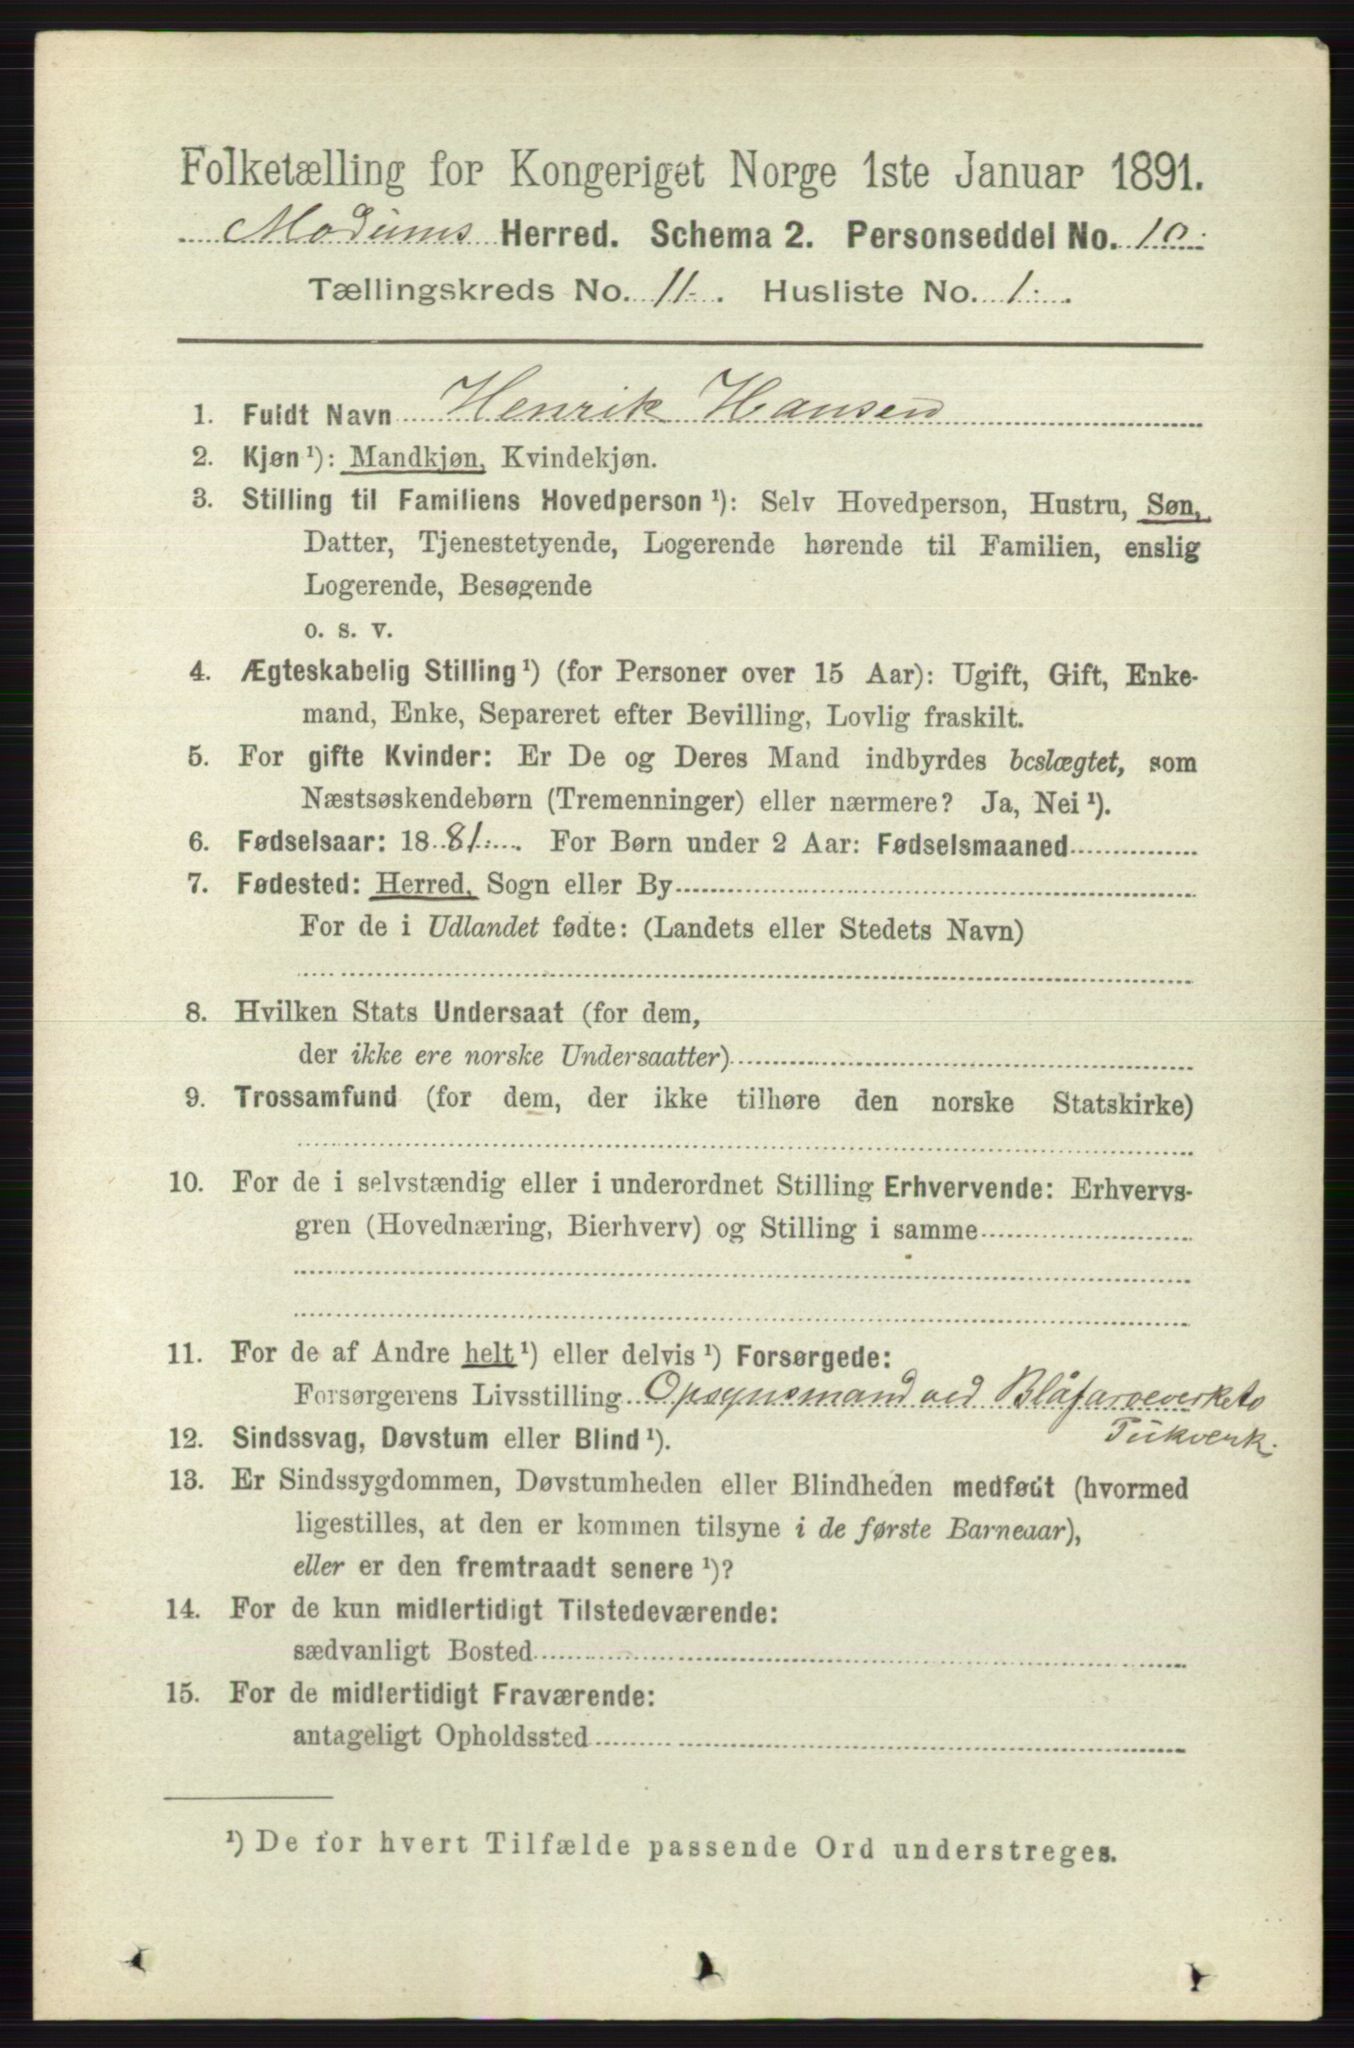 Folketælling for Kongeriget Norge 1ste Januar 1891.
Modums Herred. Schema 2. Personseddel No. 10.
Tællingskreds No. 11. Husliste No. 1.
1. Fuldt Navn Henrik Hansen
2. Kjøn ¹): Mandkjøn, Kvindekjøn.
3. Stilling til Familiens Hovedperson ¹): Selv Hovedperson, Hustru, Søn,
Datter, Tjenestetyende, Logerende hørende til Familien, enslig
Logerende, Besøgende
o. s. v.
4. Ægteskabelig Stilling ¹) (for Personer over 15 Aar): Ugift, Gift, Enke-
mand, Enke, Separeret efter Bevilling, Lovlig fraskilt.
5. For gifte Kvinder: Er De og Deres Mand indbyrdes beslægtet, som
Næstsøskendebørn (Tremenninger) eller nærmere? Ja, Nei ¹).
6. Fødselsaar: 1881. For Børn under 2 Aar: Fødselsmaaned
7. Fødested: Herred, Sogn eller By
For de i Udlandet fødte: (Landets eller Stedets Navn)
8. Hvilken Stats Undersaat (for dem,
der ikke ere norske Undersaatter)
9. Trossamfund (for dem, der ikke tilhøre den norske Statskirke)
10. For de i selvstændig eller i underordnet Stilling Erhvervende: Erhvervs-
gren (Hovednæring, Bierhverv) og Stilling i samme
11. For de af Andre helt ¹) eller delvis ¹) Forsørgede:
Forsørgerens Livsstilling Opsynsmand ved Blåfarveverkets
12. Sindssvag, Døvstum eller Blind ¹).
13. Er Sindssygdommen, Døvstumheden eller Blindheden medfødt (hvormed
ligestilles, at den er kommen tilsyne i de første Barneaar),
eller er den fremtraadt senere ¹)?
14. For de kun midlertidigt Tilstedeværende:
sædvanligt Bosted
15. For de midlertidigt Fraværende:
antageligt Opholdssted
¹) De for hvert Tilfælde passende Ord understreges.